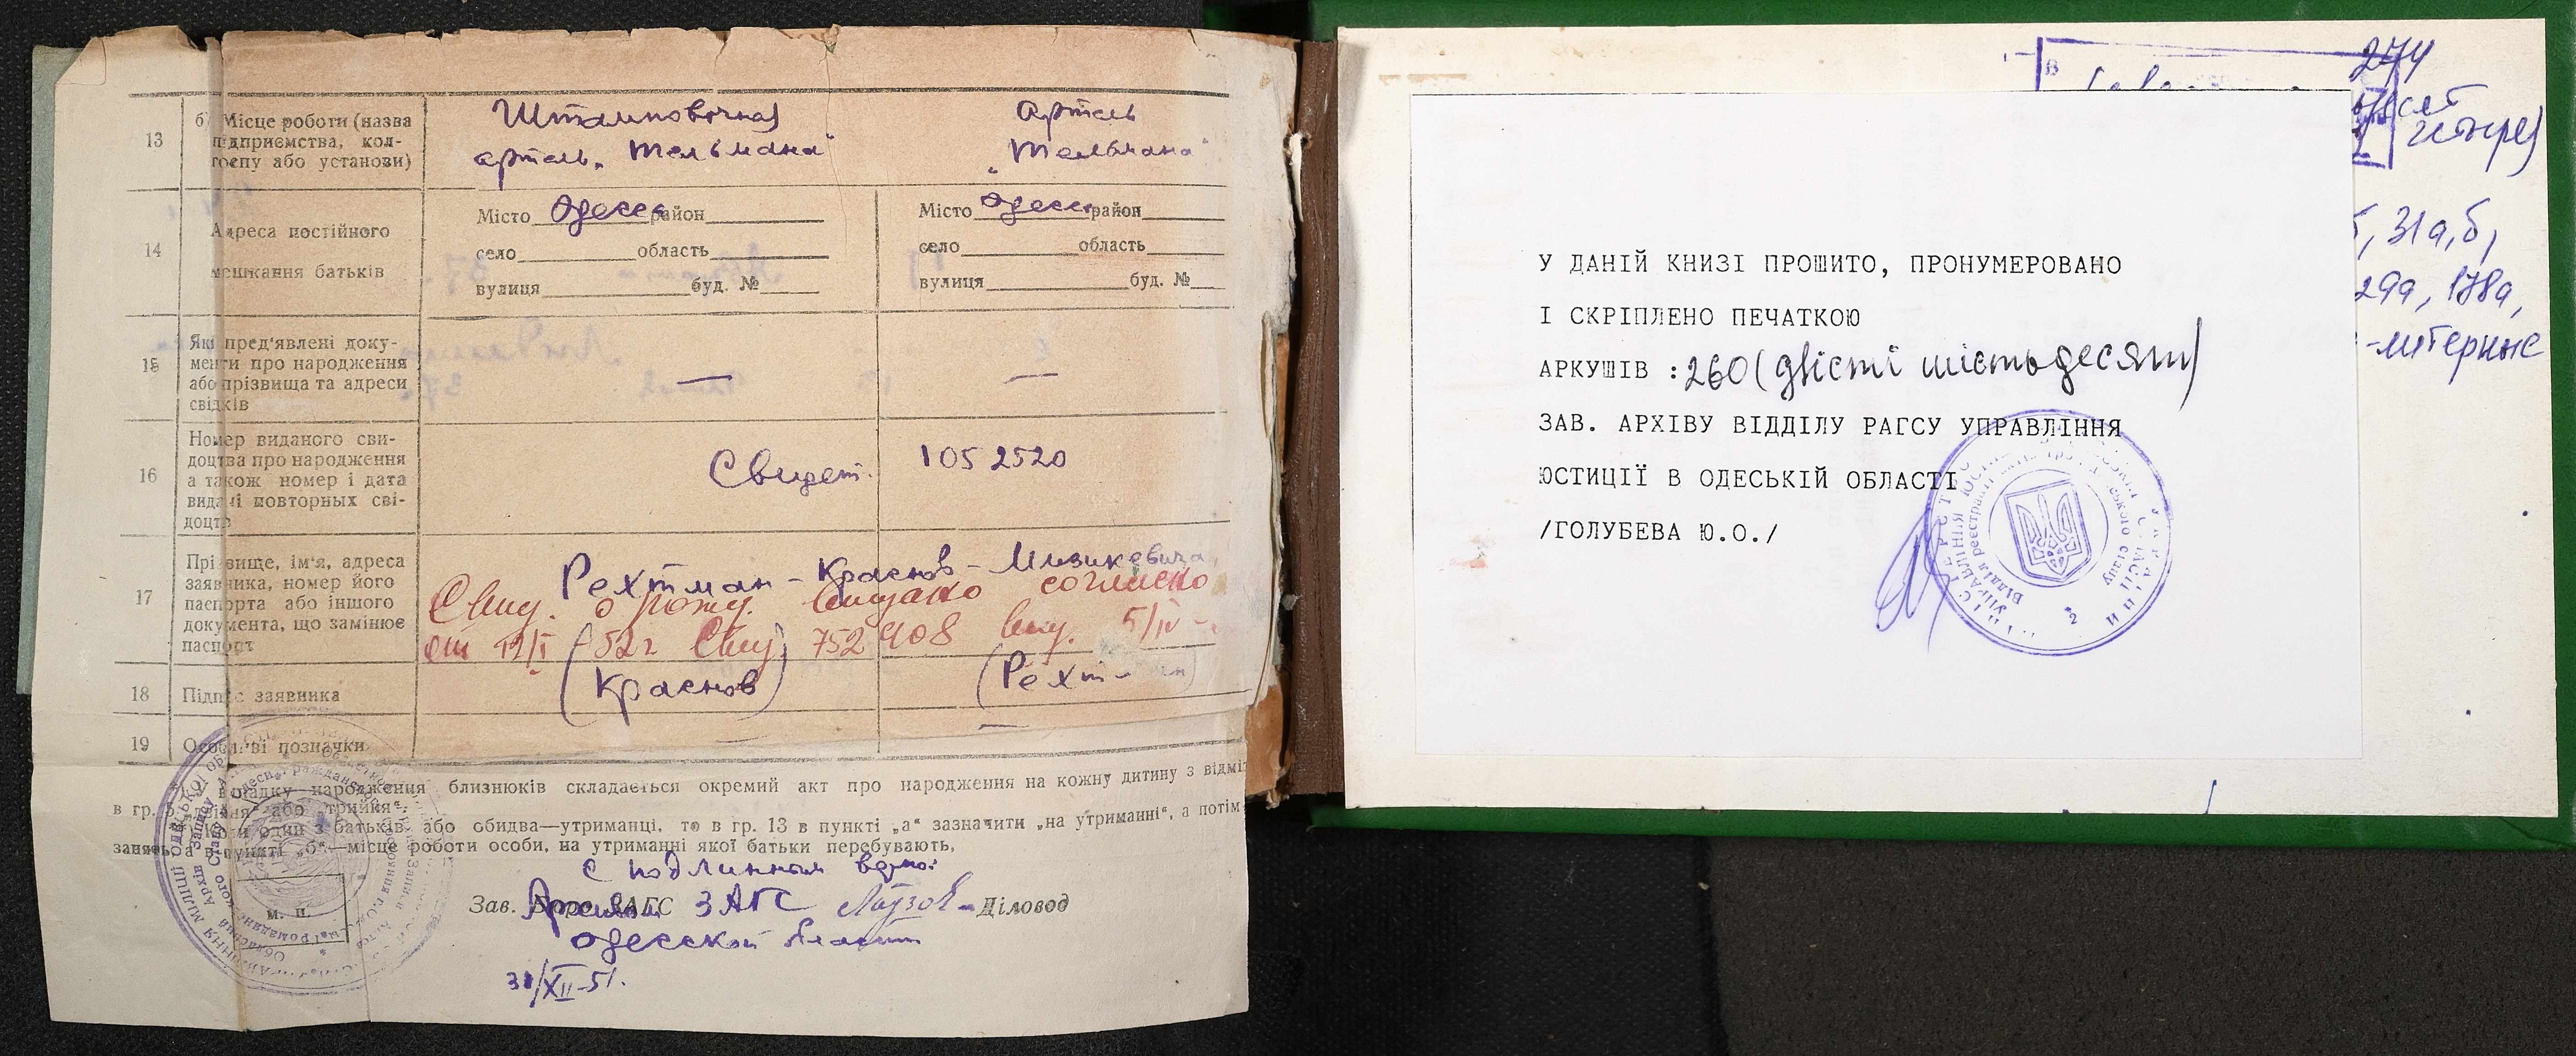 13
б) Місце роботи (назва
підприємства, кол-
госпу або установи)
Штамповочная
артель „Тельмана“
Артель
„Тельмана“
14
Адреса постійного
мешкання батьків
Місто Одесса район
село область
вулиця буд. №
Місто Одесса район
село область
вулиця буд. №
15
Які пред'явлені доку-
менти про народження
або прізвища та адреси
свідків
—
—
16
Номер виданого сві-
доцтва про народження
а також номер і дата
видачі повторних сві-
доцтв
Свидет. 1052520
17
Прізвище, ім'я, адреса
заявника, номер його
паспорта або іншого
документа, що замінює
паспорт
Рехтман - Краснов -
Свид. о рожд. выдано согласно
от 12/I-52г Свид 752908 выд. 5/IV-
18
Підпис заявника
(Краснов)
19
Особливі позначки
—
близнюків складається окремий акт про народження на кожну дитину з відміт
в гр. 5 або „трійня“.
один з батьків або обидва—утриманці, то в гр. 13 в пункті „а“ зазначити „на утриманні“, а потім
а в пункті „б“—місце роботи особи, на утриманні якої батьки перебувають,
С подлинным верно:
Зав. Бюро ЗАГС
Архивом ЗАГС
Діловод
Одесской области
31/XII-51.
м. п.
274
четыре)
31а, б,
29а, 178а,
-литерные
У ДАНІЙ КНИЗІ ПРОШИТО, ПРОНУМЕРОВАНО
І СКРІПЛЕНО ПЕЧАТКОЮ
АРКУШІВ :260 (двісті шістьдесят)
ЗАВ. АРХІВУ ВІДДІЛУ РАГСУ УПРАВЛІННЯ
ЮСТИЦІЇ В ОДЕСЬКІЙ ОБЛАСТІ
/ГОЛУБЕВА Ю.О./